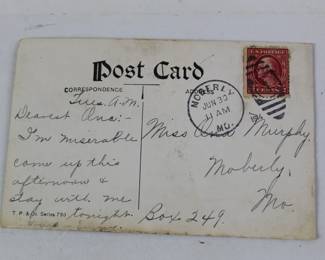 Post Card
CORRESPONDENCE
ADDRESS
Tues. A.M.
Dearest One:-
I'm miserable
come up this
afternoon &
stay with me
tonight.
T. P. & Co. Series 793
U.S. POSTAGE
2 CENTS 2
MOBERLY
JUN 22
11 AM
MO.
Miss Murphy.
Moberly,
Mo.
Box 249.